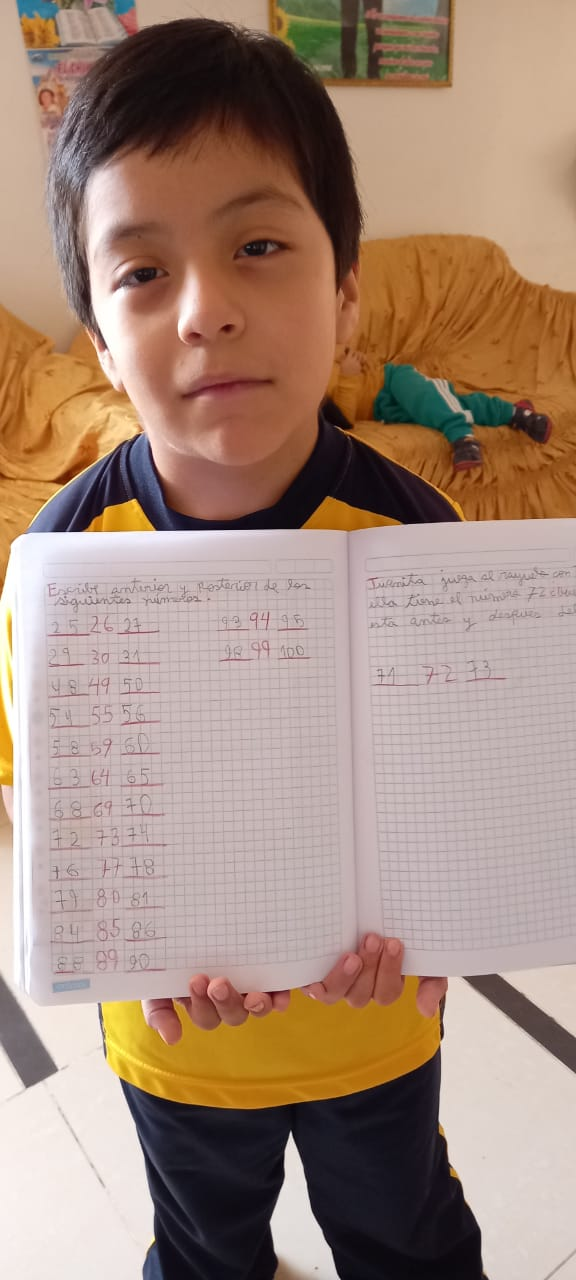 Escribe anterior y posterior de los
siguientes números.
25 26 27
29 30 31
48 49 50
54 55 56
58 59 60
63 64 65
68 69 70
72 73 74
76 77 78
79 80 81
84 85 86
88 89 90
93 94 95
98 99 100
Juanita juega al rayuela con
ella tiene el número 72
esta antes y despues del
71 72 73